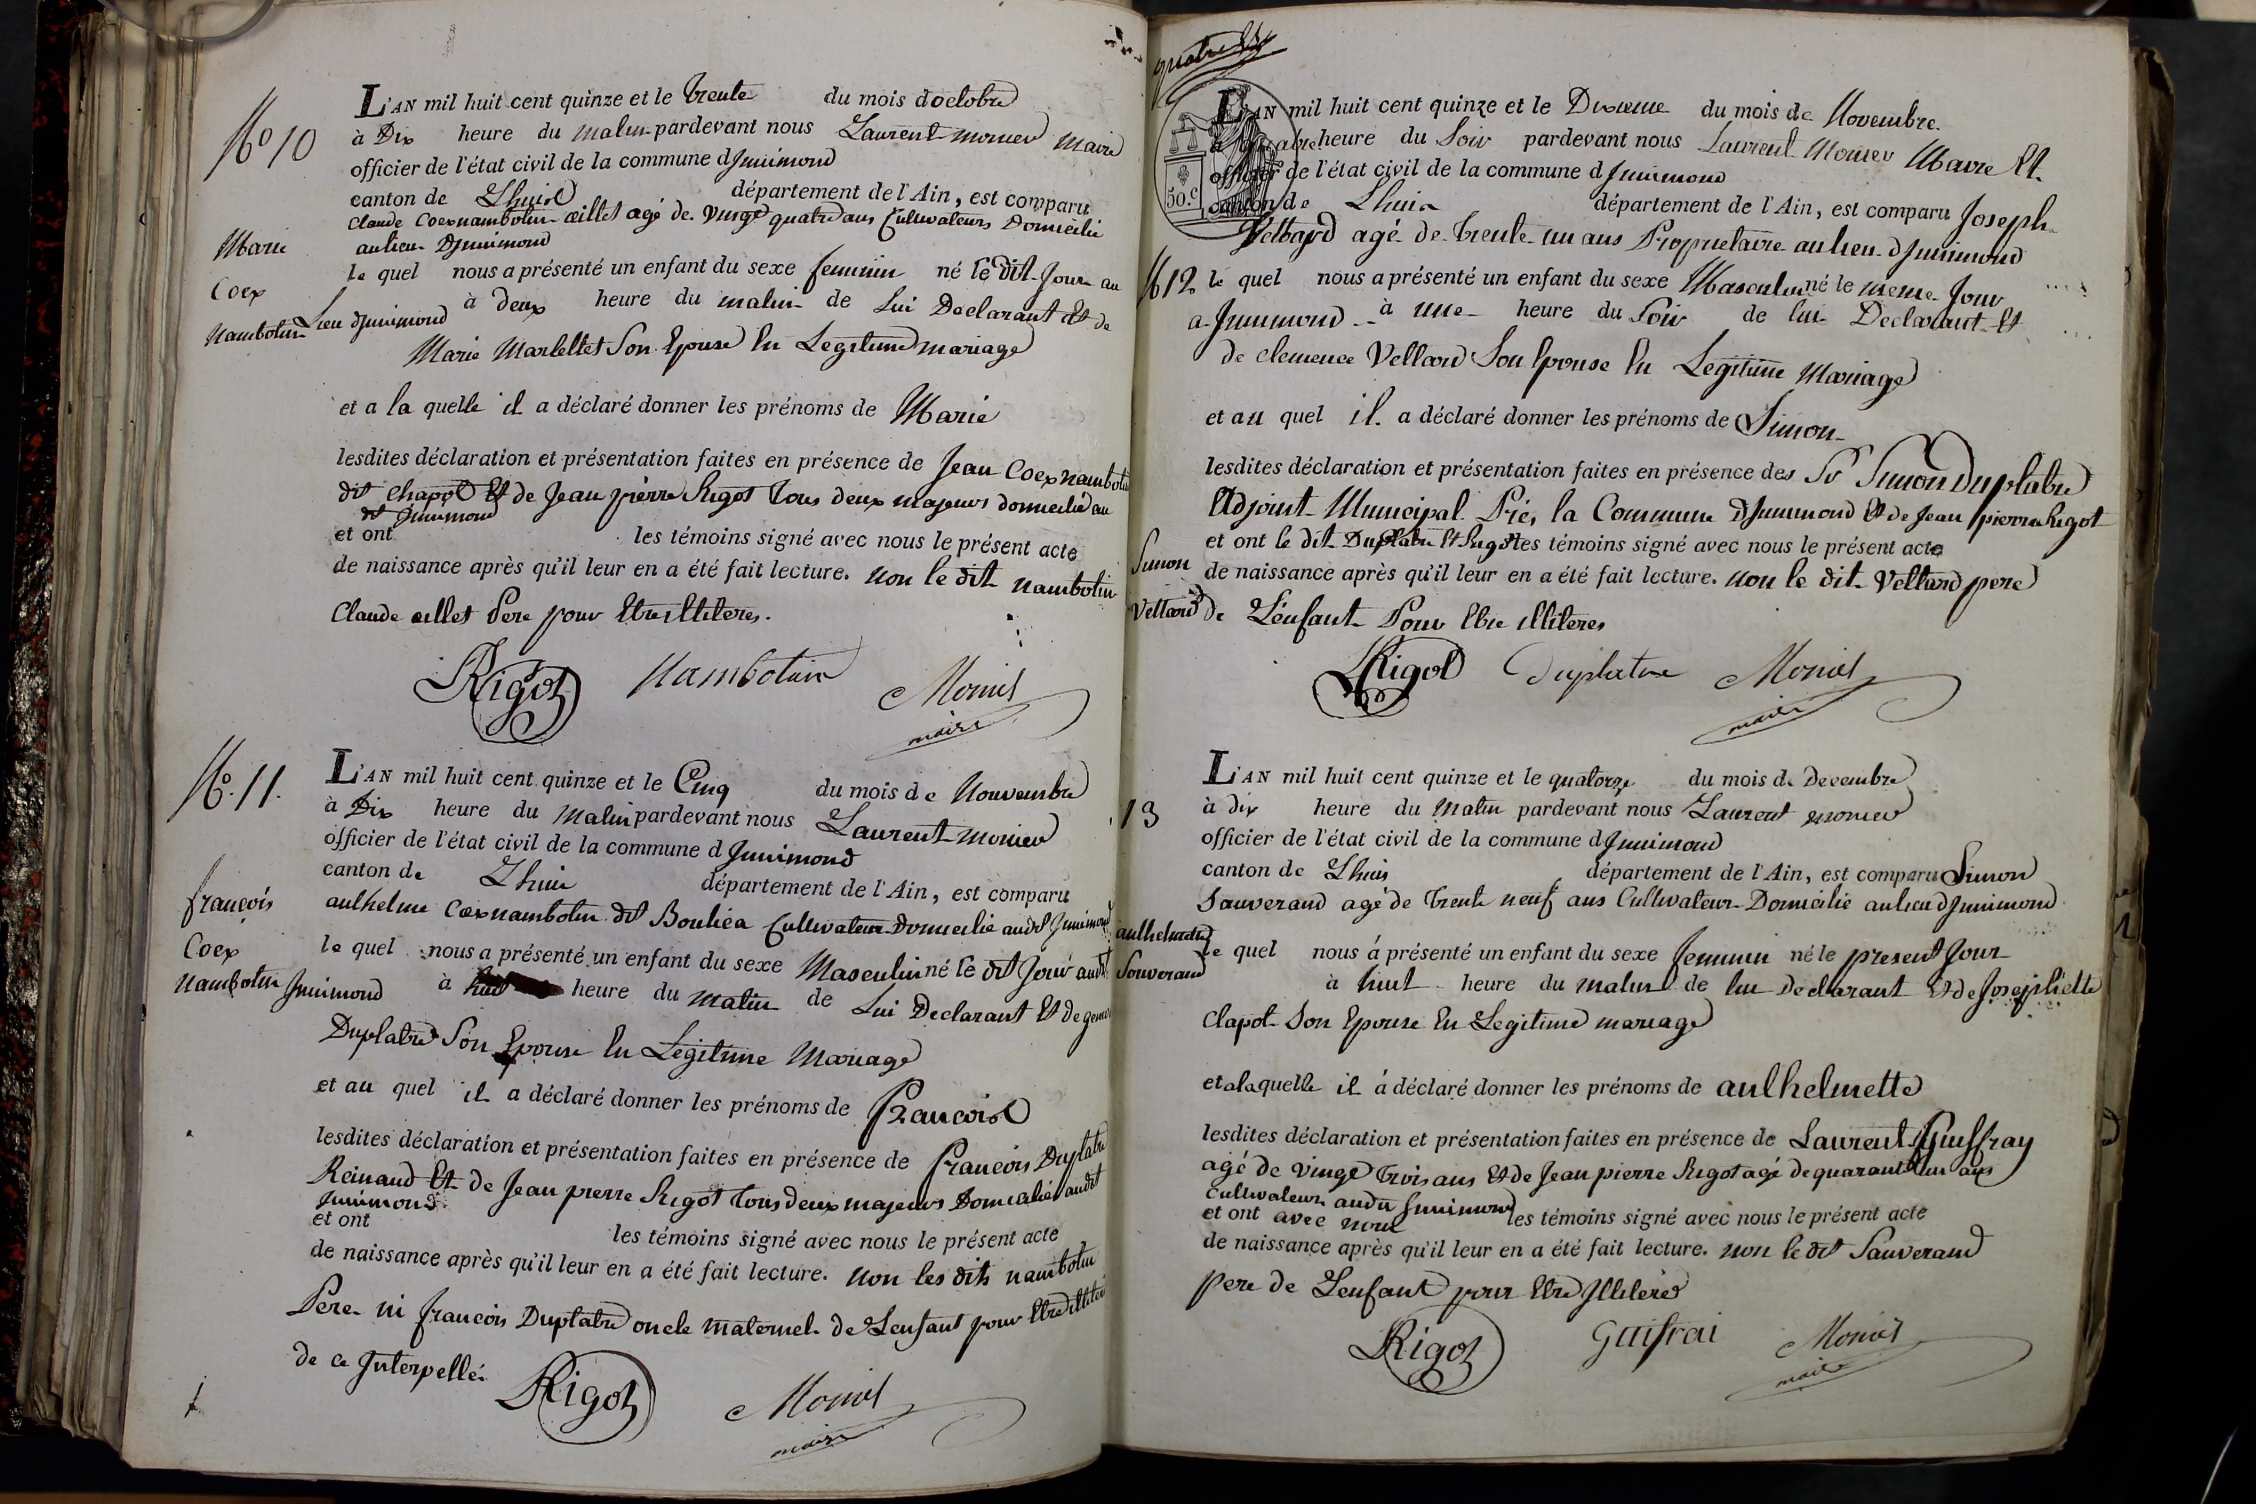 No 10
L'AN mil huit cent quinze et le trente du mois doctobre
à Dix heure du matin pardevant nous Laurent monier maire
officier de l'état civil de la commune d Jnnimond
canton de Lhuis département de l'Ain, est comparu
Claude Coexnambotin œillet agé de vingt quatre ans Cultivateurs Domicilié
au lieu Djnnimond
Marie
Coex
nambotin
le quel nous a présenté un enfant du sexe feminin né le dit Jour au
Lieu djnnimond à deux heure du matin de Lui Declarant Et de
Marie Marlettet Son Epouse En Legitime mariage
et a la quelle il a déclaré donner les prénoms de Marie
lesdites déclaration et présentation faites en présence de Jean Coexnambotin
dit chapot Et de Jean pierre Rigot tous deux majeurs domicilié au
dt Jnnimond
et ont les témoins signé avec nous le présent acte
de naissance après qu'il leur en a été fait lecture. non le dit nambotin
Claude œillet Pere pour Etre Illiteres.
Rigot Nambotin Monier
maire
No. 11.
L'AN mil huit cent quinze et le Cinq du mois de Nouvembre
à Dix heure du matin pardevant nous Laurent monier
officier de l'état civil de la commune d Jnnimond
canton de Lhuis département de l'Ain, est comparu
anthelme Coexnambotin dit Bouliéa Cultivateur Domicilié audit Jnnimond
francois
Coex
nambotin
le quel nous a présenté un enfant du sexe Masculin né le dit Jour audit
Jnnimond à huit heure du matin de Lui Declarant Et de
Duplatre Son Epouse En Legitime Mariage
et au quel il a déclaré donner les prénoms de Francois
lesdites déclaration et présentation faites en présence de francois Duplatre
Reinaud Et de Jean pierre Rigot tous deux majeurs Domicilié audit
Jnnimond.
et ont les témoins signé avec nous le présent acte
de naissance après qu'il leur en a été fait lecture. non les dits nambotin
Pere ni francois Duplatre oncle maternel de Lenfant pour Etre illiteré
de ce Jnterpellé.
Rigot Monier
maire
50.c
L'AN mil huit cent quinze et le Dixieme du mois de Novembre.
à quatre heure du Soir pardevant nous Laurent Monier Maire Et
officier de l'état civil de la commune d Jnnimond
canton de Lhuis département de l'Ain, est comparu Joseph
Vettard agé de trente un ans Proprietaire au lieu djnnimond
No 12
le quel nous a présenté un enfant du sexe Masculin né le meme Jour
a Jnnimond à une heure du Soir de lui Declarant Et
de clemence Vettard Son Epouse En Legitime Mariage
et au quel il a déclaré donner les prénoms de Simon
lesdites déclaration et présentation faites en présence des Sr Simon Duplatre
Adjoint Municipal Prés la Commune djnnimond Et de Jean pierre Rigot
Simon
Vettard
et ont le dit Duplatre Et Rigot les témoins signé avec nous le présent acte
de naissance après qu'il leur en a été fait lecture. non le dit Vettard pere
de L'enfant Pour Etre illiteres
Rigot Duplatre Monier
maire
13
L'AN mil huit cent quinze et le quatorze du mois de Decembre
à dix heure du matin pardevant nous Laurent monier
officier de l'état civil de la commune djnnimond
canton de Lhuis département de l'Ain, est comparu Simon
Sauverand agé de trente neuf ans Cultivateur Domicilié au lieu djnnimond
anthelmette
Souverand
le quel nous á présenté un enfant du sexe feminin né le present Jour
à huit heure du matin de lui Declarant Et de Josephette
Clapot Son Epouse En Legitime mariage
et a la quelle il á déclaré donner les prénoms de anthelmette
lesdites déclaration et présentation faites en présence de Laurent Guiffray
agé de vingt trois ans Et de Jean pierre Rigot agé de quarante un ans
Cultivateurs audit Jnnimond
et ont avec nous les témoins signé avec nous le présent acte
de naissance après qu'il leur en a été fait lecture. non le dit Sauverand
pere de L'enfant pour Etre Jlliteré
Rigot Guifrai Monier
maire